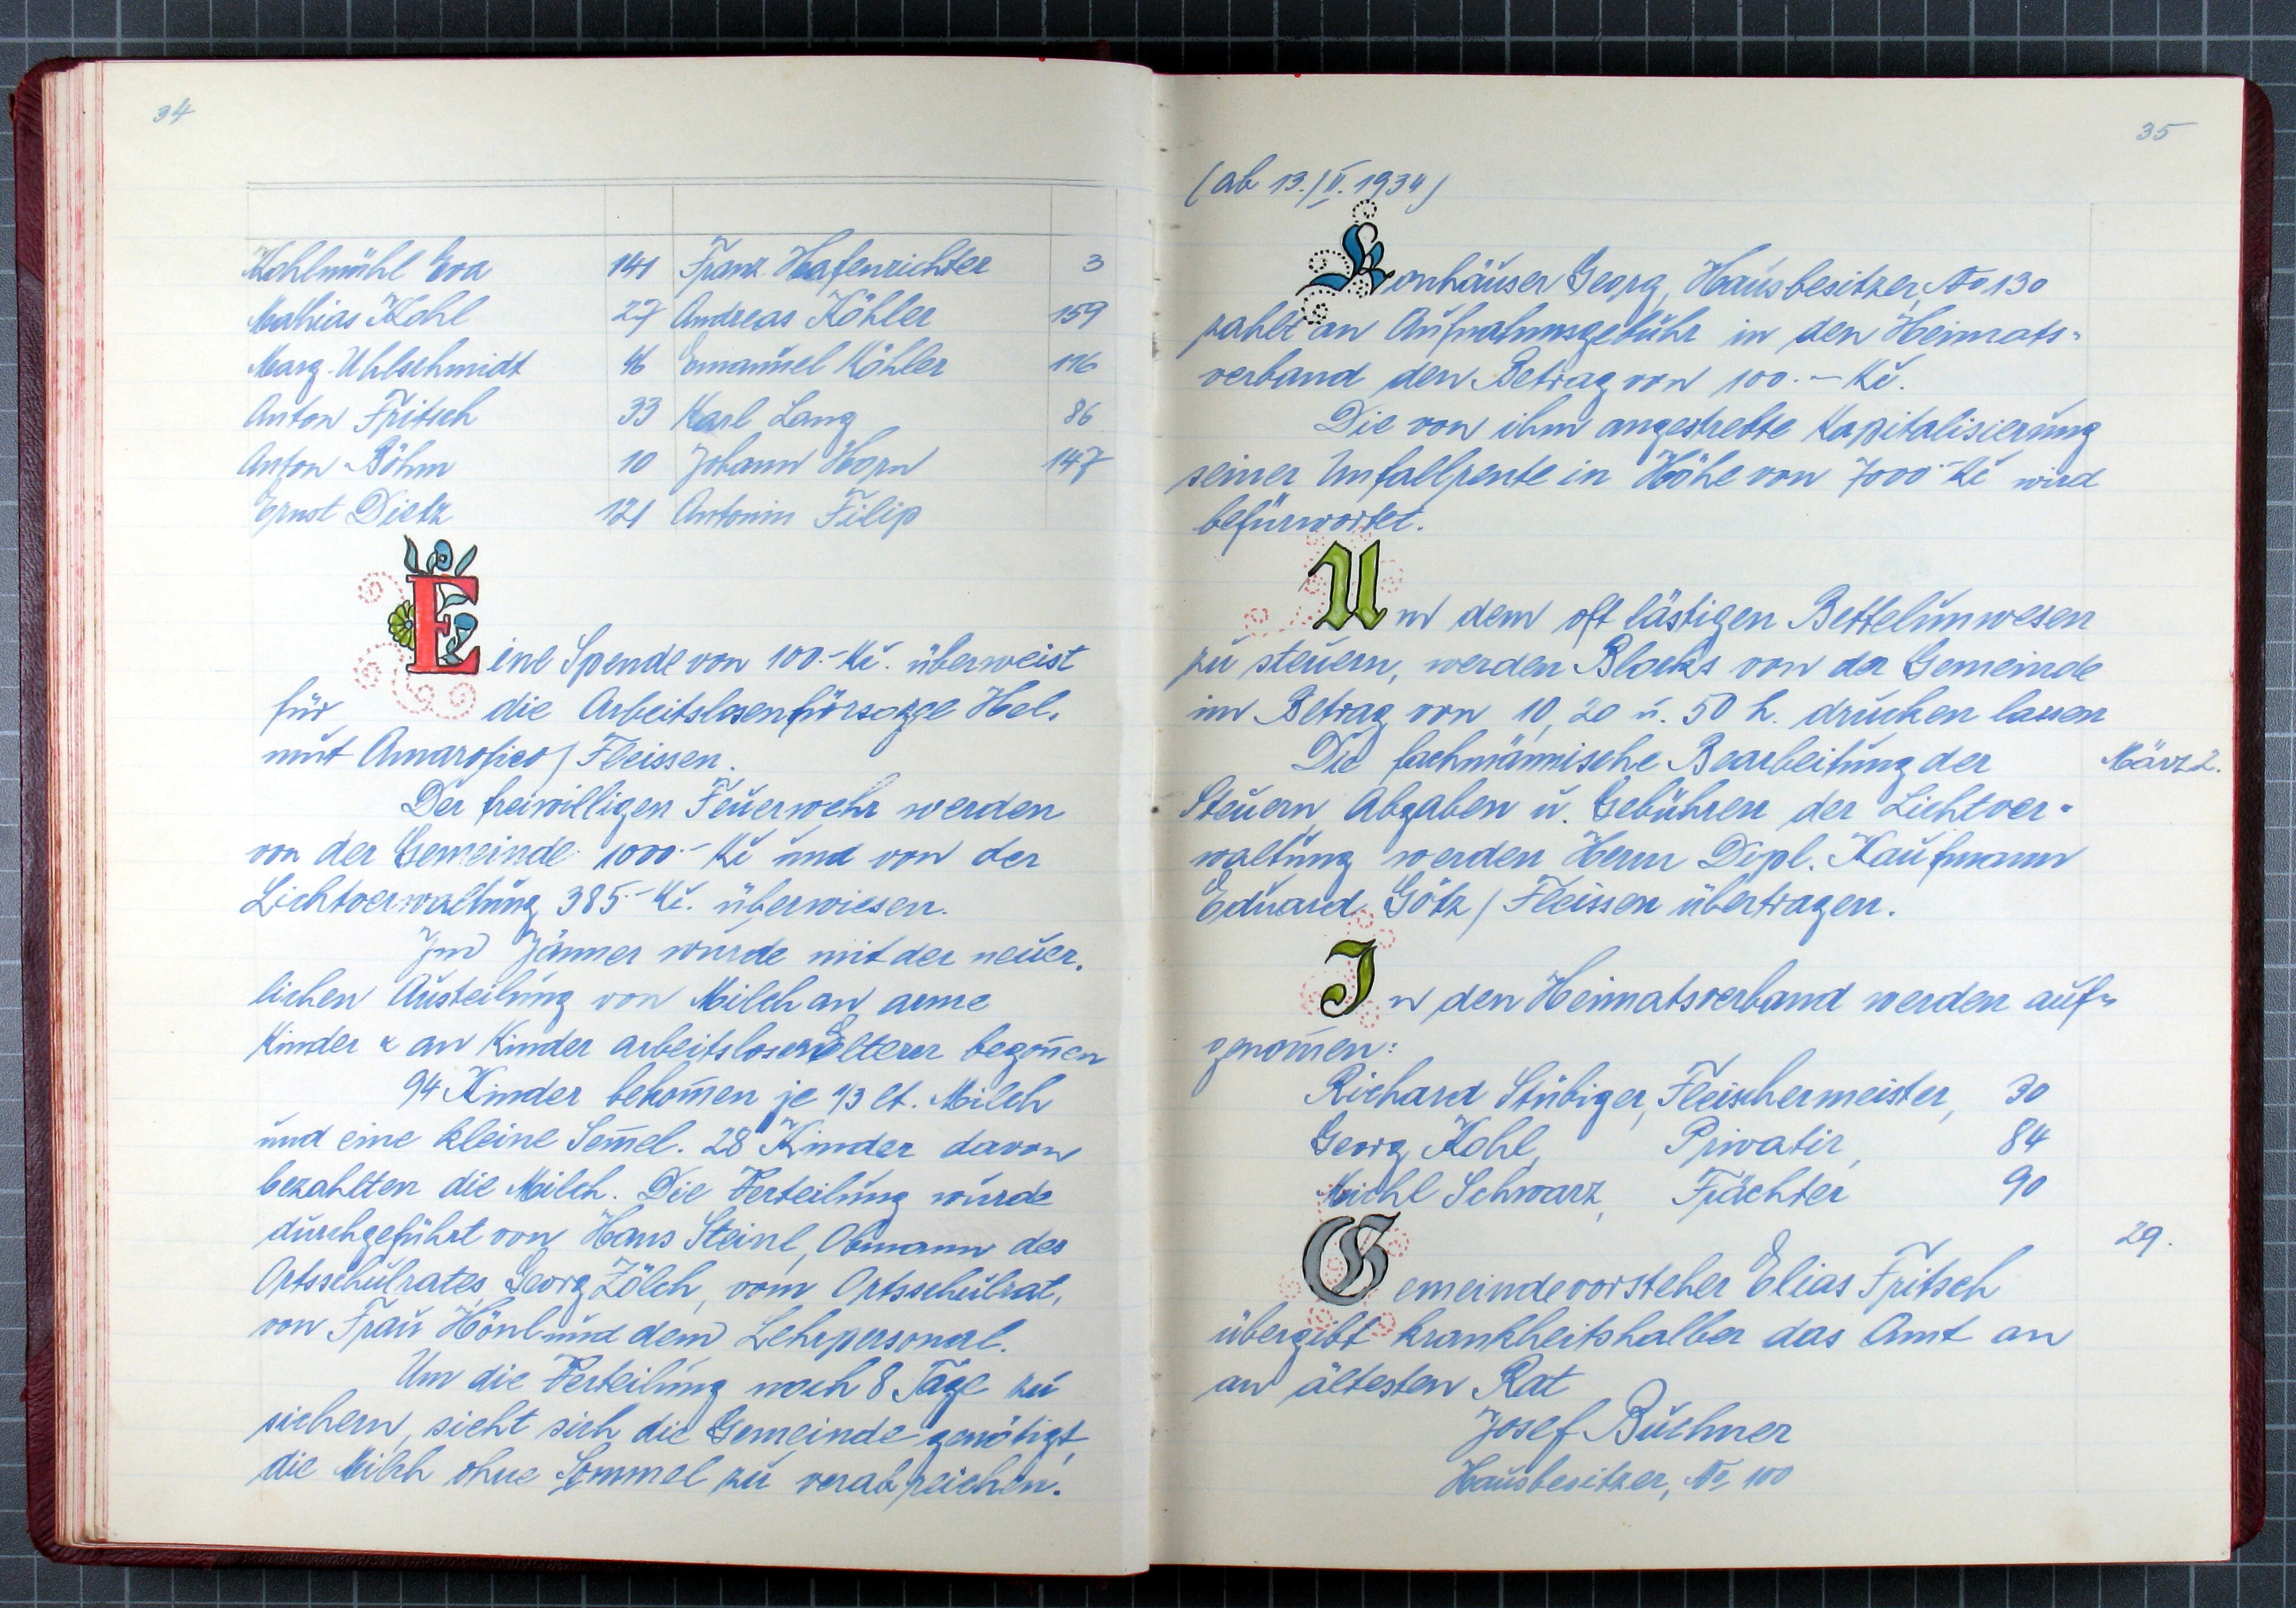 34
Kohlmühl Eva 141 Franz Hafenrichter 3
Mathias Kohl 27 Andreas Köhler 159
Marg. Uhlschmidt 46 Emanuel Köhler 116
Anton Fritsch 33 Karl Lang 86
Anton Böhm 10 Johann Horn 147
Ernst Dietz 121 Antonin Filip
Eine Spende von 100.- Kč. überweist
für die Arbeitslosenfürsorge Hel-
mut / Fleissen.
Der freiwilligen Feuerwehr werden
von der Gemeinde 1000.- Kč und von der
Lichtverwaltung 385.- Kč. überwiesen.
Im Jänner wurde mit der neuer-
lichen Austeilung von Milch an arme
Kinder & an Kinder arbeitslosen Eltern begon̄en
94 Kinder bekom̄en je 1/3 lt. Milch
und eine kleine Sem̄el. 28 Kinder davon
bezahlten die Milch. Die Verteilung wurde
durchgeführt von Hans Steinl, Obmann des
Ortsschulrates, Georg Zölch, vom Ortsschulrat,
von Frau Hönl und dem Lehrpersonal.
Um die Verteilung noch 8 Tage zu
sichern, sieht sich die Gemeinde genötigt,
die Milch ohne Semmel zu verabreichen.
35
(ab 13./II. 1934)
Konhäuser Georg, Hausbesitzer, No 130
zahlt an Aufnahmsgebühr in den Heimats-
verband den Betrag von 100.- Kč.
Die von ihm angestrebte Kapitalisierung
seiner Unfallrente in Höhe von 7000.- Kč wird
befürwortet.
Um dem oft lästigen Bettelunwesen
zu steuern, werden Blocks von der Gemeinde
im Betrag von 10, 20 u. 50 h. drucken lassen
Die fachmännische Bearbeitung der März 2.
Steuern, Abgaben u. Gebühren der Lichtver-
waltung werden Herrn Dipl. Kaufmann
Eduard Götz / Fleissen übertragen.
In den Heimatsverband werden auf-
genom̄en:
Richard Stübiger, Fleischermeister, 30
Georg Kohl, Privatir, 84
Michl Schwarz, Frächter 90
29.
Gemeindevorsteher Elias Fritsch
übergibt krankheitshalber das Amt an
an ältesten Rat
Josef Büchner
Hausbesitzer, No 100